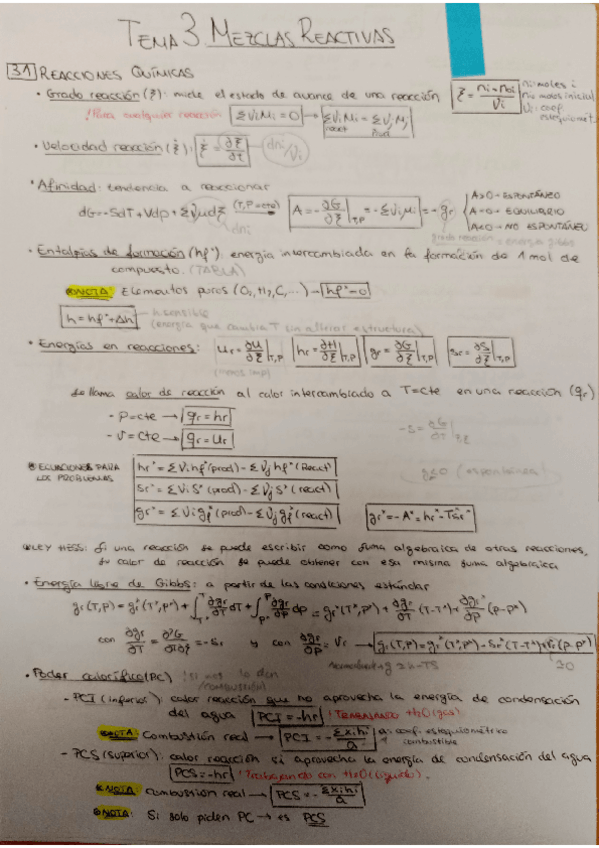 TEMA 3 MEZCLAS REACTIVAS
3.1 REACCIONES QUÍMICAS
• Grado reacción (ξ): mide el estado de avance de una reacción
ξ = (ni - noi)/νi
ni: moles i
noi: moles inicial
νi: coef. estequiomét.
!Para cualquier reacción Σνi Mi = 0 → Σνi Mi = Σνj Mj
• Velocidad reacción (ξ̇): ξ̇ = ∂ξ/∂t dni/νi
• Afinidad: tendencia a reaccionar
dG = -SdT + Vdp + Σνiμidξ (T,P=cte) → A = -∂G/∂ξ|T,P = -Σνiμi = -gr
dni
A>0 → ESPONTÁNEO
A=0 → EQUILIBRIO
A<0 → NO ESPONTÁNEO
• Entalpías de formación (hf°): energía intercambiada en la formación de 1 mol de
compuesto. (TABLA)
NOTA: Elementos puros (O₂, H₂, C, ...) → hf° = 0
h = hf° + Δh
h sensible
(energía que cambia T sin alterar estructura)
• Energías en reacciones: ur = ∂U/∂ξ|T,P hr = ∂H/∂ξ|T,P gr = ∂G/∂ξ|T,P sr = ∂S/∂ξ|T,P
Se llama calor de reacción al calor intercambiado a T=cte en una reacción (qr)
- P = cte → qr = hr
- V = cte → qr = ur
ECUACIONES PARA
LOS PROBLEMAS
hr° = Σνi hf° (prod) - Σνj hf° (React)
sr° = Σνi S° (prod) - Σνj S° (react)
gr° = Σνi gf° (prod) - Σνj gf° (react)
gr° = -A° = hr° - Tsr°
LEY HESS: Si una reacción se puede escribir como suma algebraica de otras reacciones,
su calor de reacción se puede obtener con esa misma suma algebraica
• Energía libre de Gibbs: a partir de las condiciones estándar
gr(T,P) = gr°(T°,p°) + ∫ ∂gr/∂T dT + ∫ ∂gr/∂p dp = gr°(T°,p°) + ∂gr/∂T (T-T°) + ∂gr/∂p (p-p°)
con ∂gr/∂T = ∂²G/∂T∂ξ = -sr y con ∂gr/∂p = vr → gr(T,P) = gr°(T°,p°) - sr°(T-T°) + vr(p-p°)
• Poder calorífico (PC)
- PCI (inferior): calor reacción que no aprovecha la energía de condensación
del agua PCI = -hr !TRABAJANDO H₂O (gas)
NOTA: Combustión real → PCI = -Σxihi/a a: coef. estequiométrico
combustible
- PCS (superior): calor reacción si aprovecha la energía de condensación del agua
PCS = -hr !Trabajando con H₂O (líquido).
NOTA: Combustión real → PCS = -Σxihi/a
NOTA: Si solo piden PC → es PCS